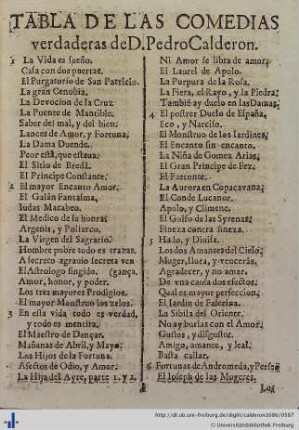 TABLA DE LAS COMEDIAS
verdaderas de D. Pedro Calderon.
1 La Vida es sueño.
Casa con dos puertas.
El Purgatorio de San Patricio.
La gran Cenobia.
La Devocion de la Cruz
La Puente de Mantible.
Saber del mal, y del bien.
Lances de Amor, y Fortuna.
La Dama Duende.
Peor está, que estava.
El Sitio de Bredá.
El Principe Constante.
2 El mayor Encanto Amor.
El Galán Fantasma.
Iudas Macabeo.
El Medico de su honra.
Argenis, y Poliarco.
La Virgen del Sagrario.
Hombre pobre todo es trazas.
A secreto agravio secreta ven
El Astrologo fingido. (gança.
Amor, honor, y poder.
Los tres mayores Prodigios.
El mayor Monstruo los zelos.
3 En esta vida todo es verdad,
y todo es mentira.
El Maestro de Dançar.
Mañanas de Abril, y Mayo.
Los Hijos de la Fortuna.
Afectos de Odio, y Amor.
La Hija del Ayre, parte 1. y 2.
Ni Amor se libra de amor.
El Laurel de Apolo.
La Purpura de la Rosa.
La Fiera, el Rayo, y la Piedra.
Tambiē ay duelo en las Damas.
4 El postrer Duelo de España.
Eco, y Narciso.
El Monstruo de los Iardines.
El Encanto sin encanto.
La Niña de Gomez Arias.
El Gran Principe de Fez.
El Faetonte.
La Aurora en Copacavana.
El Conde Lucanor.
Apolo, y Climene.
El Golfo de las Syrenas.
Fineza contra fineza.
5 Hado, y Divisa.
Los dos Amantes del Cielo.
Muger, llora, y vencerás.
Agradecer, y no amar.
De una causa dos efectos.
Qual es mayor perfeccion.
El Iardin de Falerina.
La Sibila del Oriente.
No ay burlas con el Amor.
Gustos, y disgustos.
Amigo, amante, y leal.
Basta callar.
6 Fortunas de Andromeda, y Perseo
El Ioseph de las Mugeres.
Los
http://dl.ub.uni-freiburg.de/diglit/calderon1686/0587
© Universitätsbibliothek Freiburg